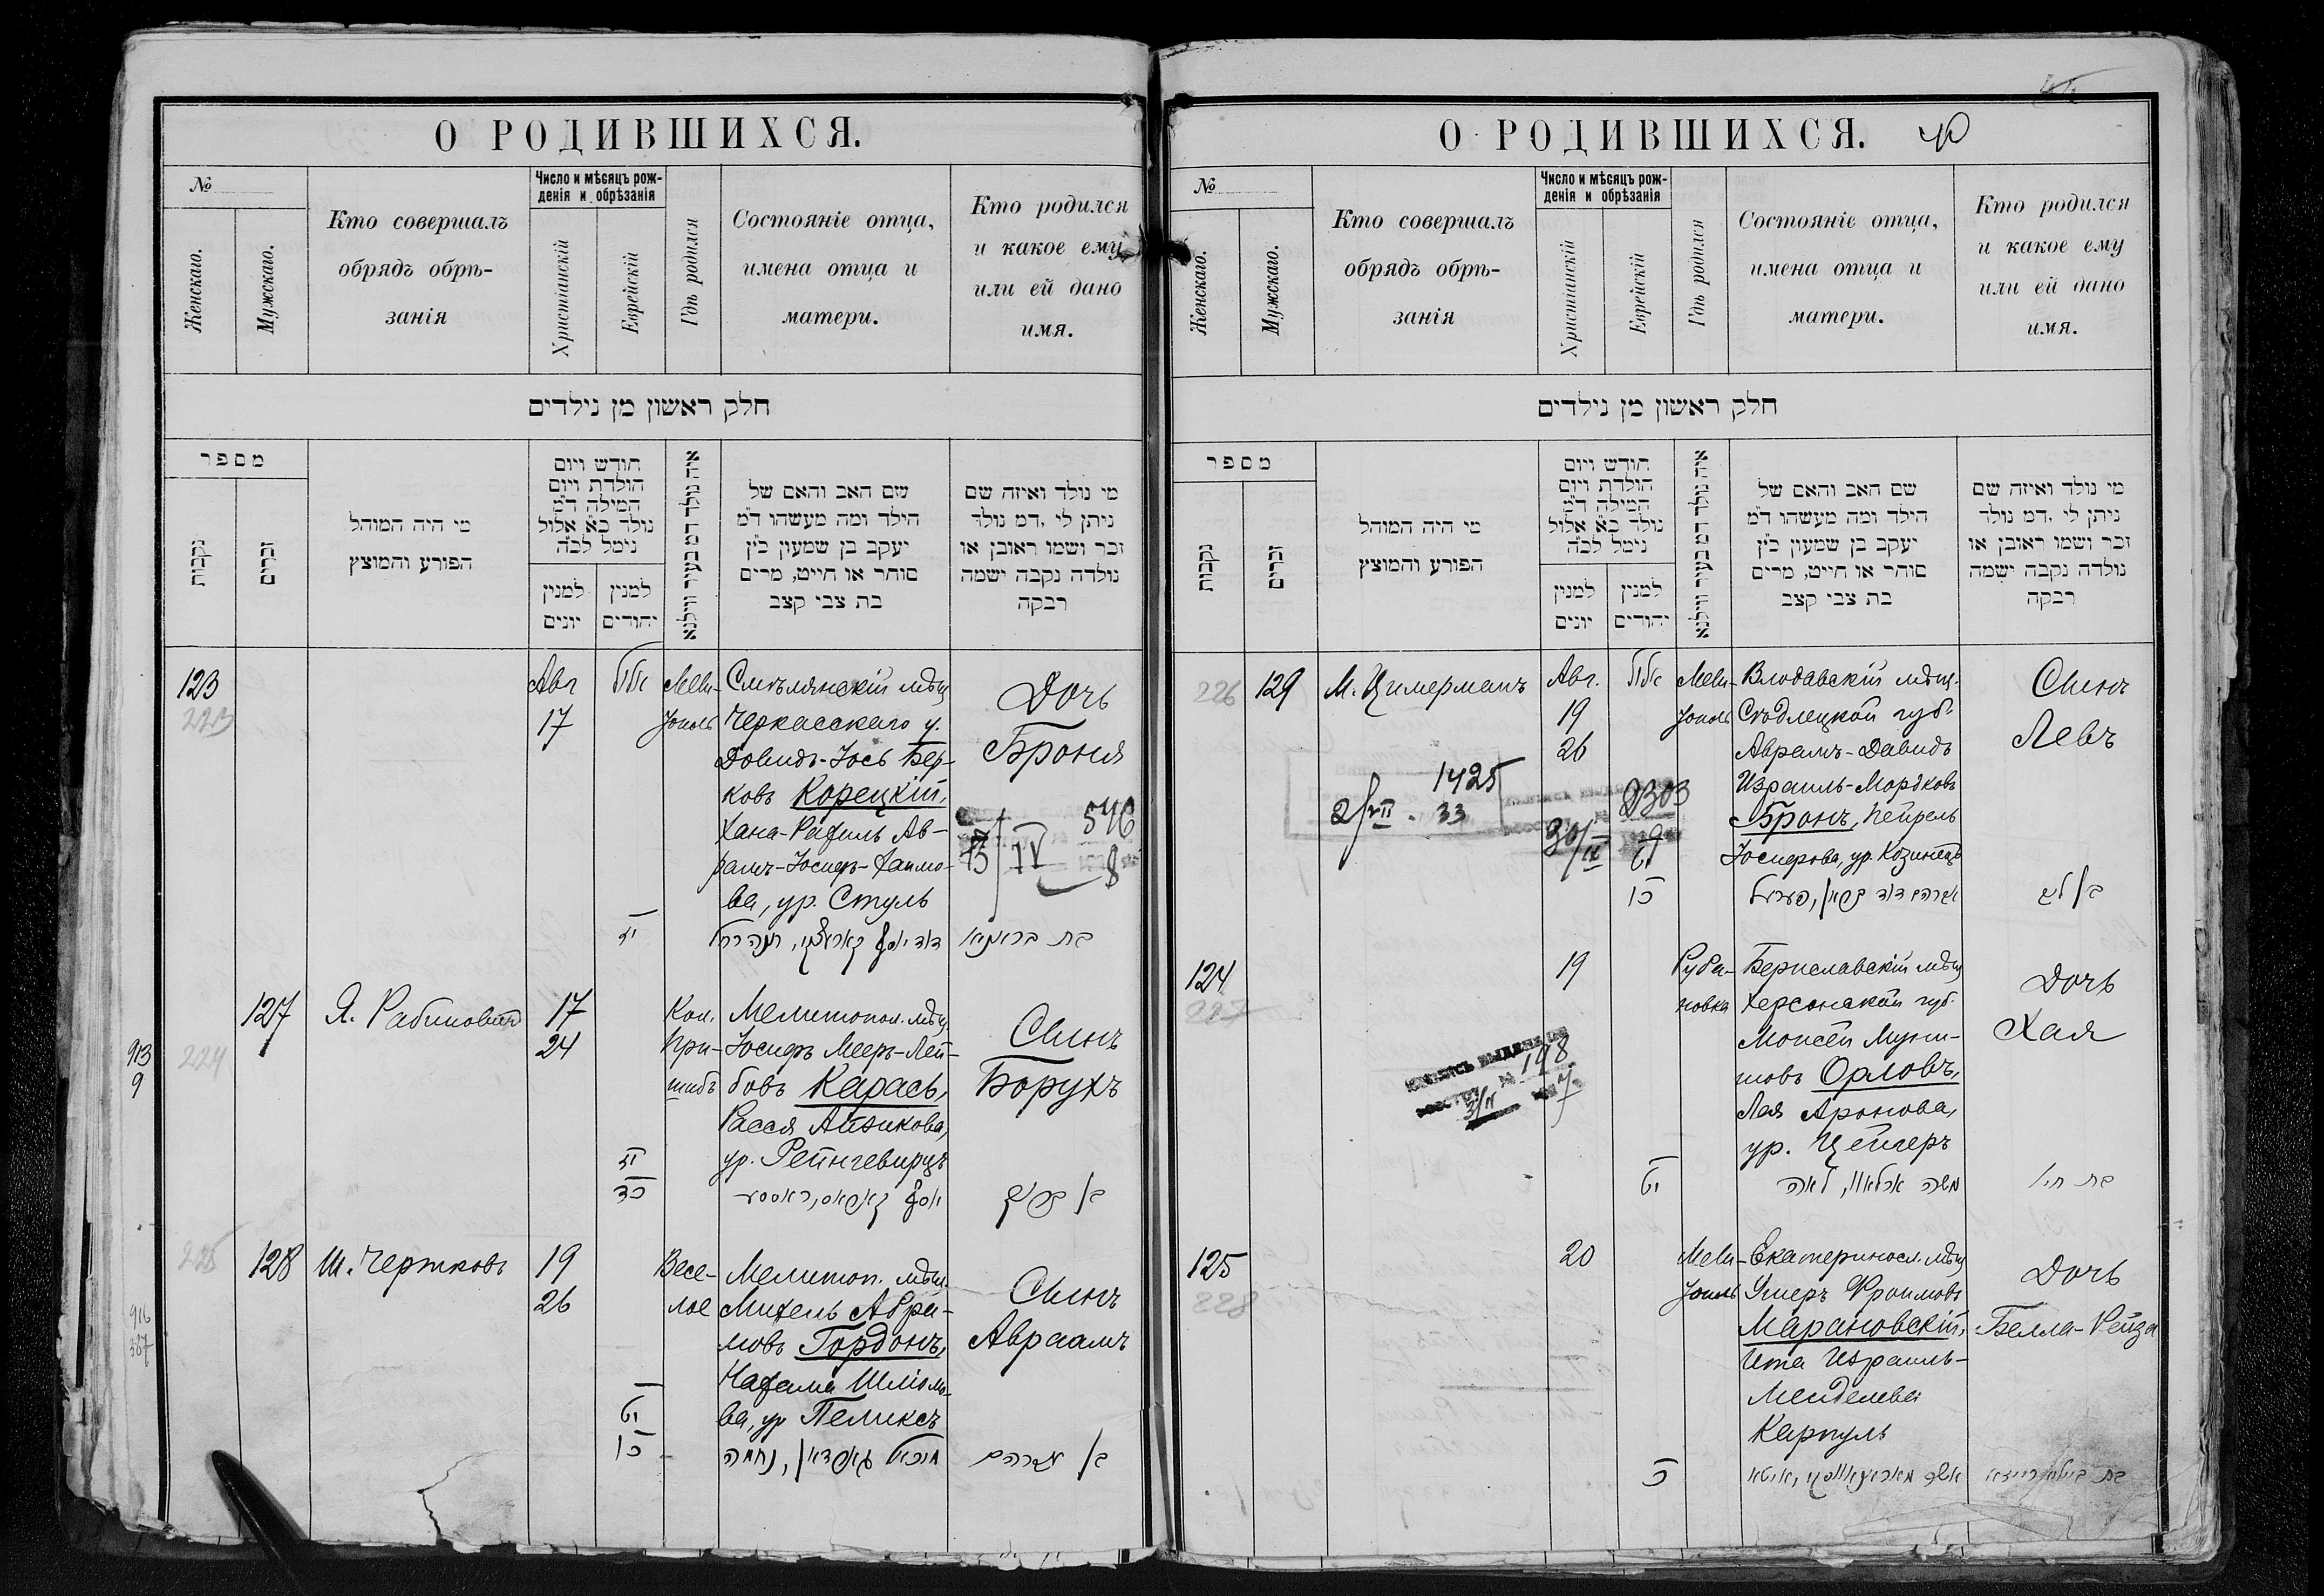 О РОДИВШИХСЯ.
№
Женскаго.
Мужскаго.
Кто совершалъ
обрядъ обрѣ-
занія
Число и мѣсяцъ рож-
денія и обрѣзанія
Христіанскій
Еврейскій
Гдѣ родился
Состояніе отца,
имена отца и
матери.
Кто родился
и какое ему
или ей дано
имя.
חלק ראשון מן נילדים
מספר
נקבות
זכרים
מי היה המוהל
הפורע והמוצץ
חודש ויום
הולדת ויום
המילה ד״מ
נולד כ״א אלול
נימל לכ״ה
למנין
יונים
למנין
יהודים
שם האב והאם של
הילד ומה מעשהו ד״מ
יעקב בן שמעון כ״ץ
סוחר או חייט, מרים
בת צבי קצב
מי נולד ואיזה שם
ניתן לי, דמ נולד
זכר ושמו ראובן או
נולדה נקבה ישמה
רבקה
123
223
Авг
17
אלול
יז
Мели-
тополь
Смѣлянскій мѣщ
Черкасскаго у.
Довидъ-Іось Бер-
ковъ Корецкій,
Хана-Рахиль Ав-
рамъ-Іосифъ-Хаимо-
ва, ур. Стуль
Дочь
Броня
546
13/IV 8
127
224
913
9
Я. Рабиновичъ
17
24
יז
כד
Кол.
При-
шибъ
Мелитопол. мѣщ
Іосифъ Мееръ-Лей-
бовъ Карась,
Рася Айзикова,
ур. Рейнгевирцъ
Сынъ
Борухъ
בן ברוך
225
128
916
Ш. Чертковъ
19
26
יט
כו
Весе-
лое
Мелитоп. мѣщ.
Михель Абра-
мовъ Гордонъ,
Нахама Шліомо-
ва, ур Пеликсъ
מיכאל גארדאן, נחמה
Сынъ
Авраамъ
בן אברהם
О РОДИВШИХСЯ.
№
Женскаго.
Мужскаго.
Кто совершалъ
обрядъ обрѣ-
занія
Число и мѣсяцъ рож-
денія и обрѣзанія
Христіанскій
Еврейскій
Гдѣ родился
Состояніе отца,
имена отца и
матери.
Кто родился
и какое ему
или ей дано
имя.
חלק ראשון מן נילדים
מספר
נקבות
זכרים
מי היה המוהל
הפורע והמוצץ
חודש ויום
הולדת ויום
המילה ד״מ
נולד כ״א אלול
נימל לכ״ה
למנין
יונים
למנין
יהודים
שם האב והאם של
הילד ומה מעשהו ד״מ
יעקב בן שמעון כ״ץ
סוחר או חייט, מרים
בת צבי קצב
מי נולד ואיזה שם
ניתן לי, דמ נולד
זכר ושמו ראובן או
נולדה נקבה ישמה
רבקה
226
129
М. Цимерманъ
Авг.
19
26
אלול
יט
כו
1425
33
2303
Мели-
тополь
Влодавскій мѣщ.
Сѣдлецкой губ.
Аврамъ-Давидъ
Израиль-Мордковъ
Бронъ, Пейрель
Іосифова, ур. Козинецъ
Сынъ
Левъ
124
227
19
יט
198
Руба-
новка
Бериславскій мѣщ
Херсонской губ.
Моисей
Орловъ,
Лея Аронова,
ур. Цейгеръ
משה ארלאוו, לאה
Дочь
Хая
בת חיי׳
125
228
20
כ
Мели-
тополь
Екатериносл. мѣщ
Ушеръ Фроимовъ
Марановскій,
Ита Израиль-
Менделева
Карпуль
Дочь
Белла-Рейза